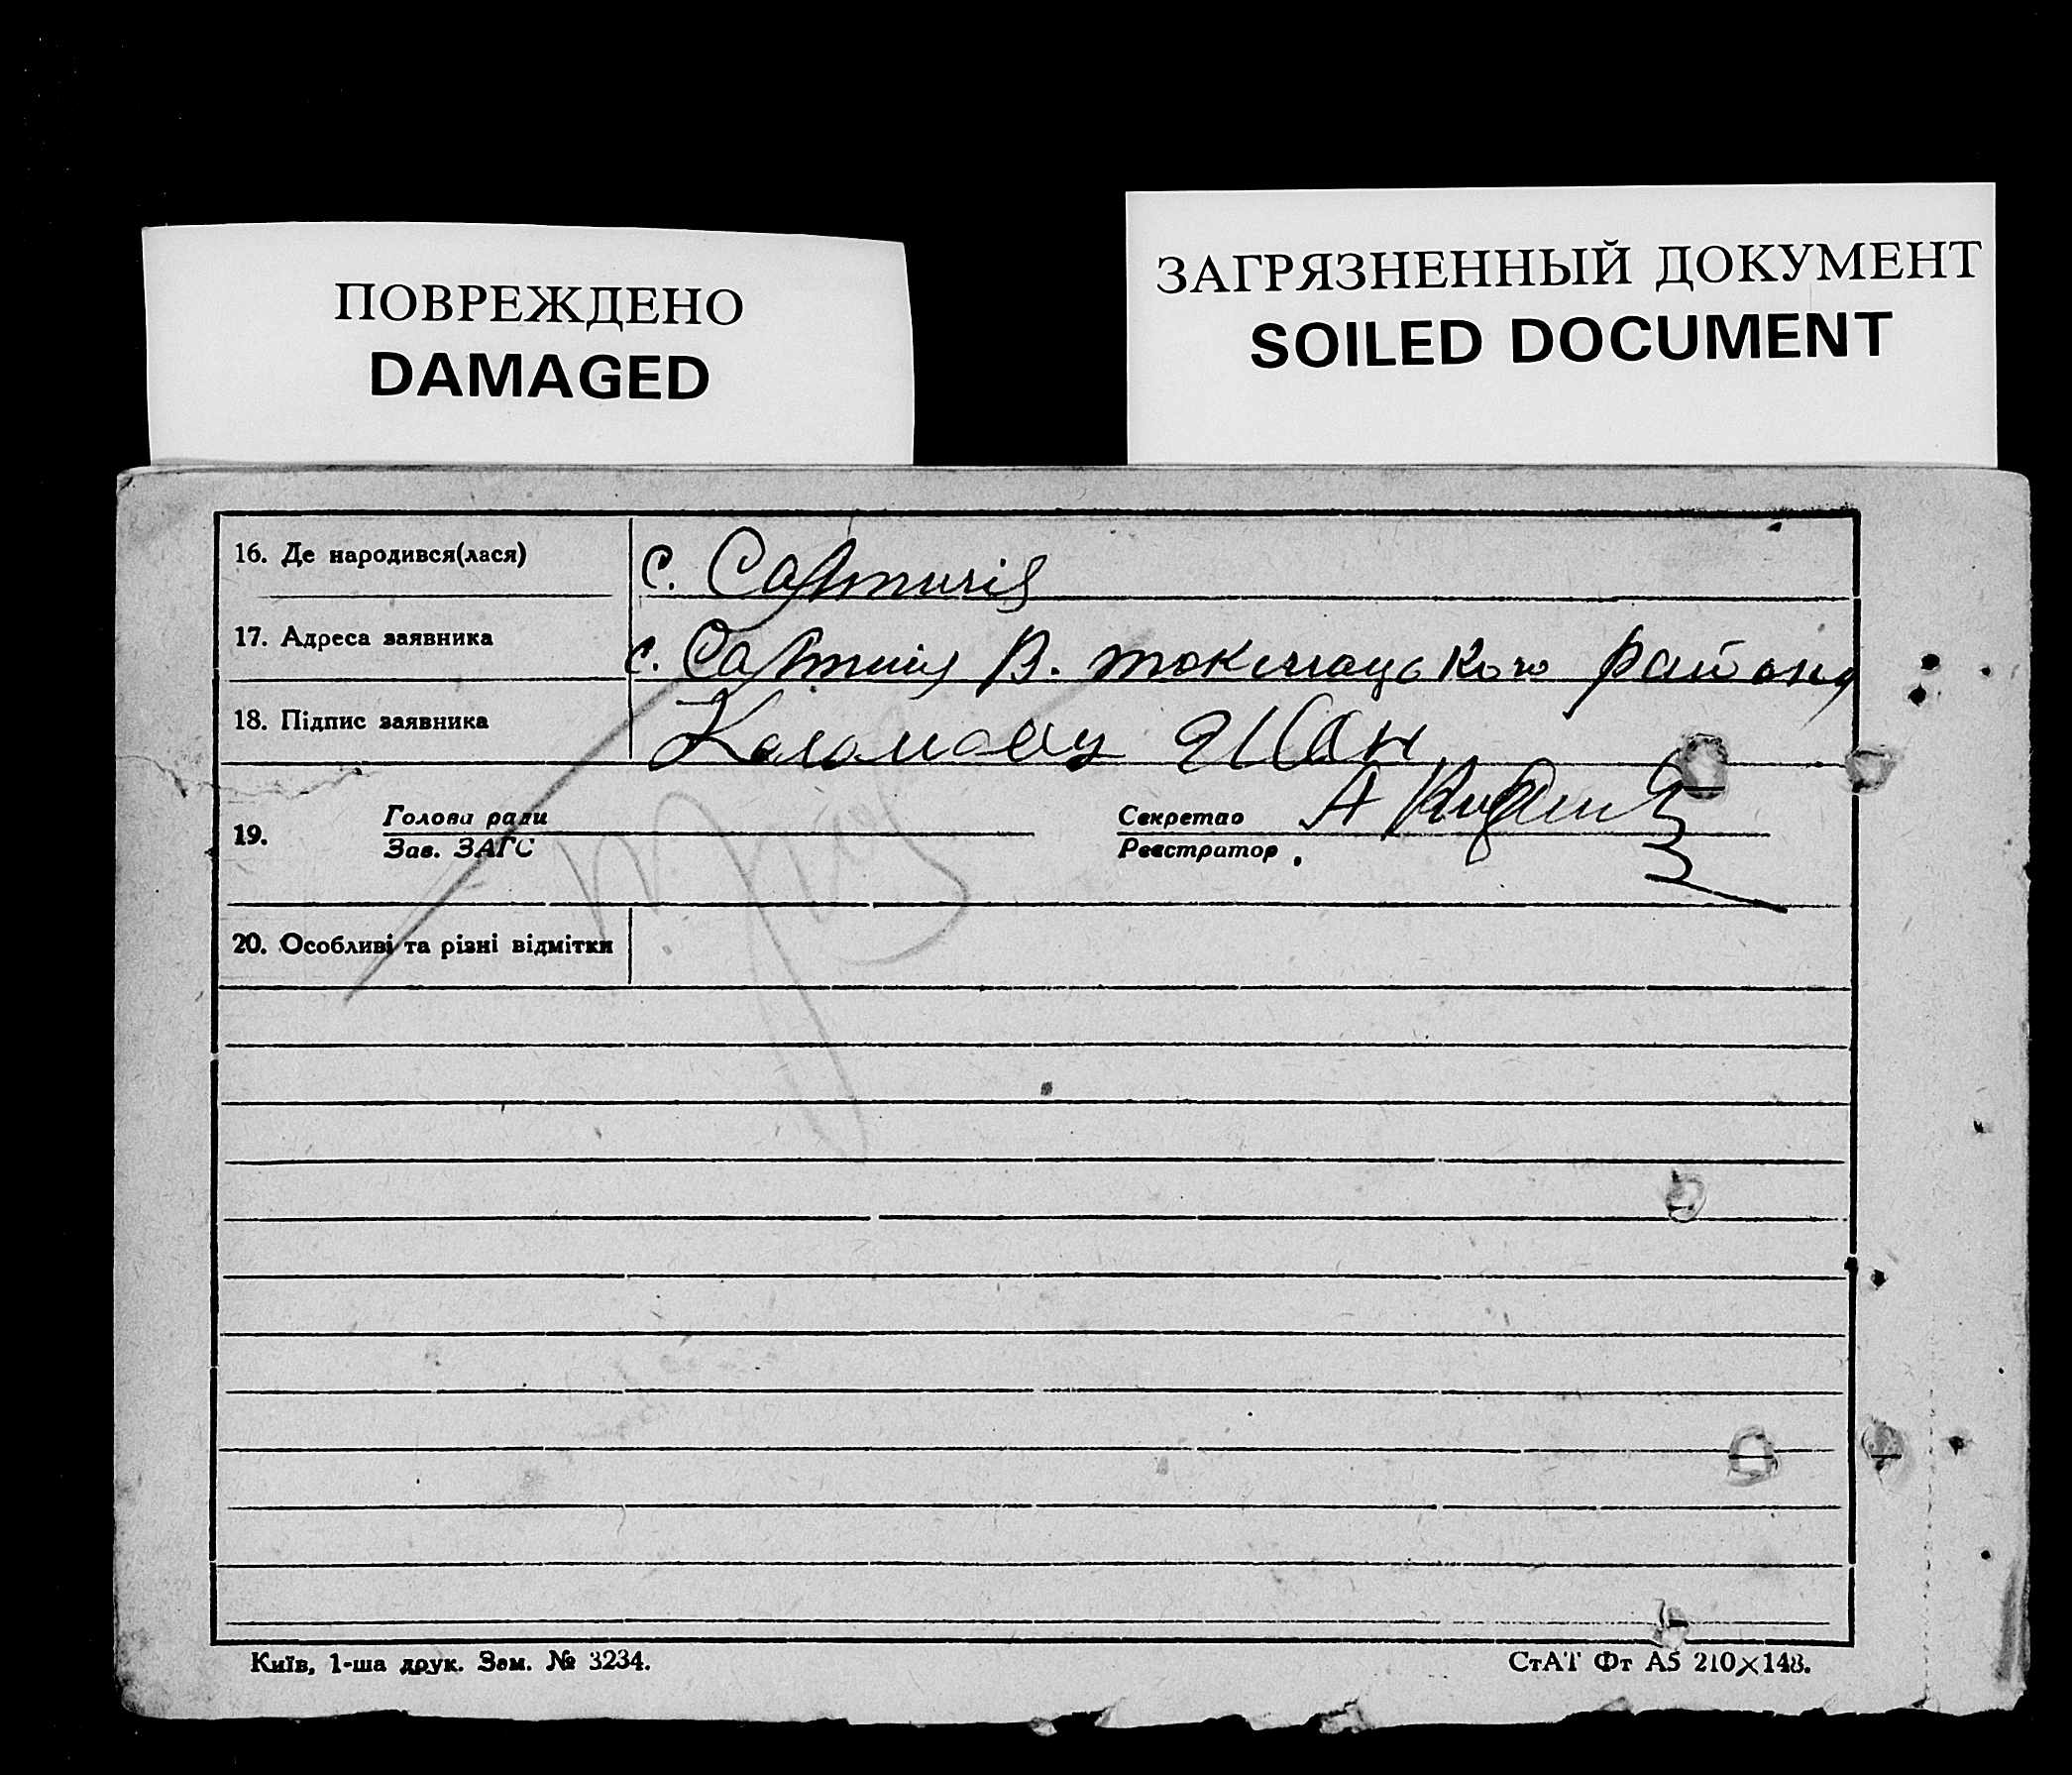 ПОВРЕЖДЕНО
DAMAGED
ЗАГРЯЗНЕННЫЙ ДОКУМЕНТ
SOILED DOCUMENT
16. Де народився(лася) с.
17. Адреса заявника с. В. токмацького району
18. Підпис заявника
19. Голова ради
Зав. ЗАГС
Секретар А
Реєстратор
20. Особливі та різні відмітки
Київ, 1-ша друк. Зам. № 3234.
СтАТ Фт А5 210×148.